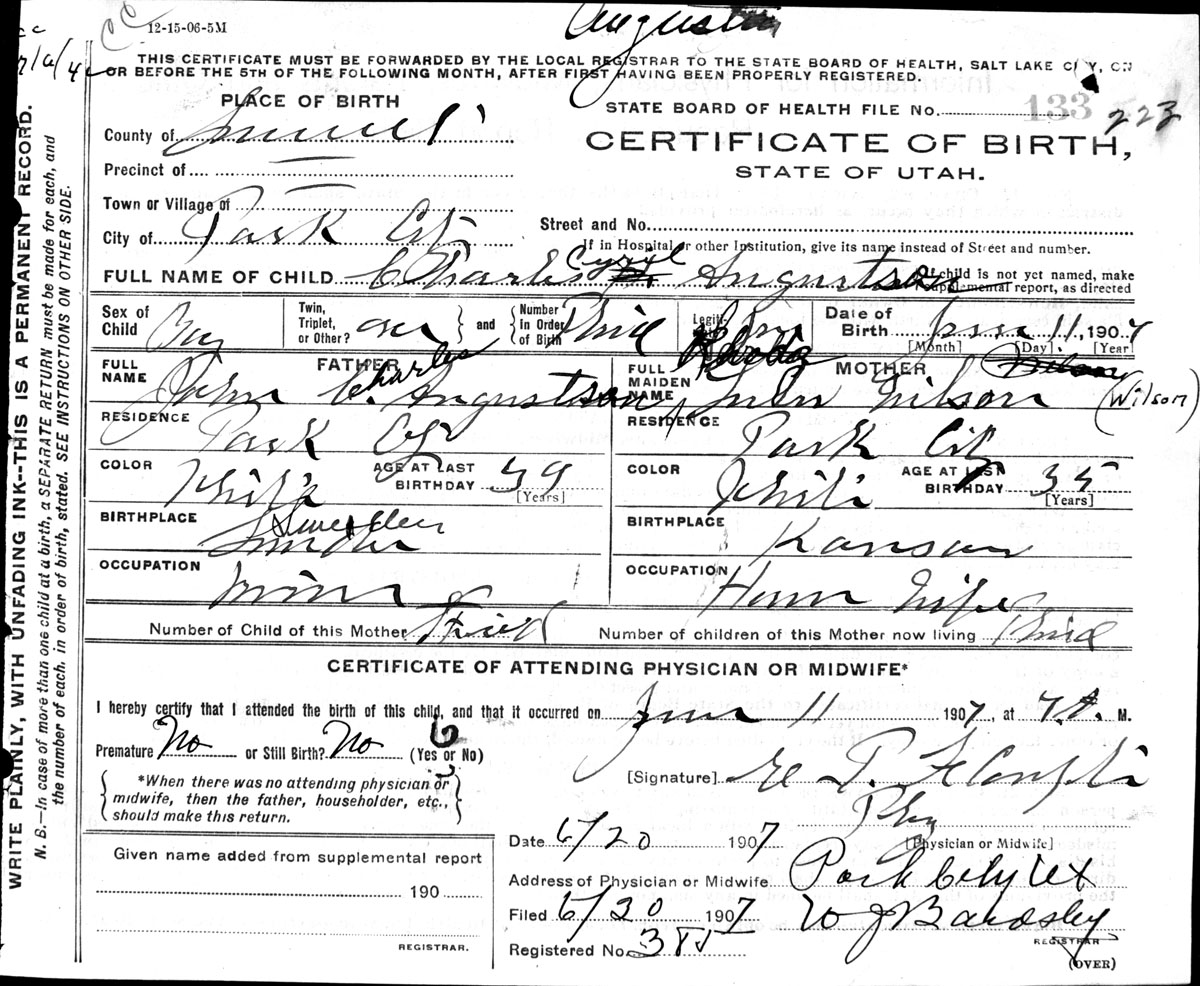 12-15-06-5M
THIS CERTIFICATE MUST BE FORWARDED BY THE LOCAL REGISTRAR TO THE STATE BOARD OF HEALTH, SALT LAKE CITY, ON
OR BEFORE THE 5TH OF THE FOLLOWING MONTH, AFTER FIRST HAVING BEEN PROPERLY REGISTERED.
WRITE PLAINLY, WITH UNFADING INK--THIS IS A PERMANENT RECORD.
N. B.—In case of more than one child at a birth, a SEPARATE RETURN must be made for each, and
the number of each, in order of birth, stated. SEE INSTRUCTIONS ON OTHER SIDE.
PLACE OF BIRTH
STATE BOARD OF HEALTH FILE No. 133 223
CERTIFICATE OF BIRTH,
STATE OF UTAH.
County of Summit
Precinct of
Town or Village of
City of Park City
Street and No.
If in Hospital or other Institution, give its name instead of Street and number.
FULL NAME OF CHILD Charles Cyryl Augustson
If child is not yet named, make
supplemental report, as directed
Sex of Child Boy
Twin, Triplet, or Other? one and Number In Order of Birth Third
Date of Birth June 11, 1907
[Month] [Day] [Year]
FATHER
FULL NAME John Charles Augustson
RESIDENCE Park City
COLOR White AGE AT LAST BIRTHDAY 39 [Years]
BIRTHPLACE Sweden
OCCUPATION Miner
MOTHER
FULL MAIDEN NAME Wilson (Wilson)
RESIDENCE Park City
COLOR White AGE AT LAST BIRTHDAY 35 [Years]
BIRTHPLACE Kansas
OCCUPATION House Wife
Number of Child of this Mother Third Number of children of this Mother now living Third
CERTIFICATE OF ATTENDING PHYSICIAN OR MIDWIFE*
I hereby certify that I attended the birth of this child, and that it occurred on June 11 1907, at 7 A. M.
Premature No or Still Birth? No (Yes or No)
*When there was no attending physician or
midwife, then the father, householder, etc.,
should make this return.
[Signature]
Phy
[Physician or Midwife]
Date 6/20 1907
Address of Physician or Midwife Park City Ut
Filed 6/20 1907 W J Bardsley
REGISTRAR
Registered No.
(OVER)
Given name added from supplemental report
190
REGISTRAR.